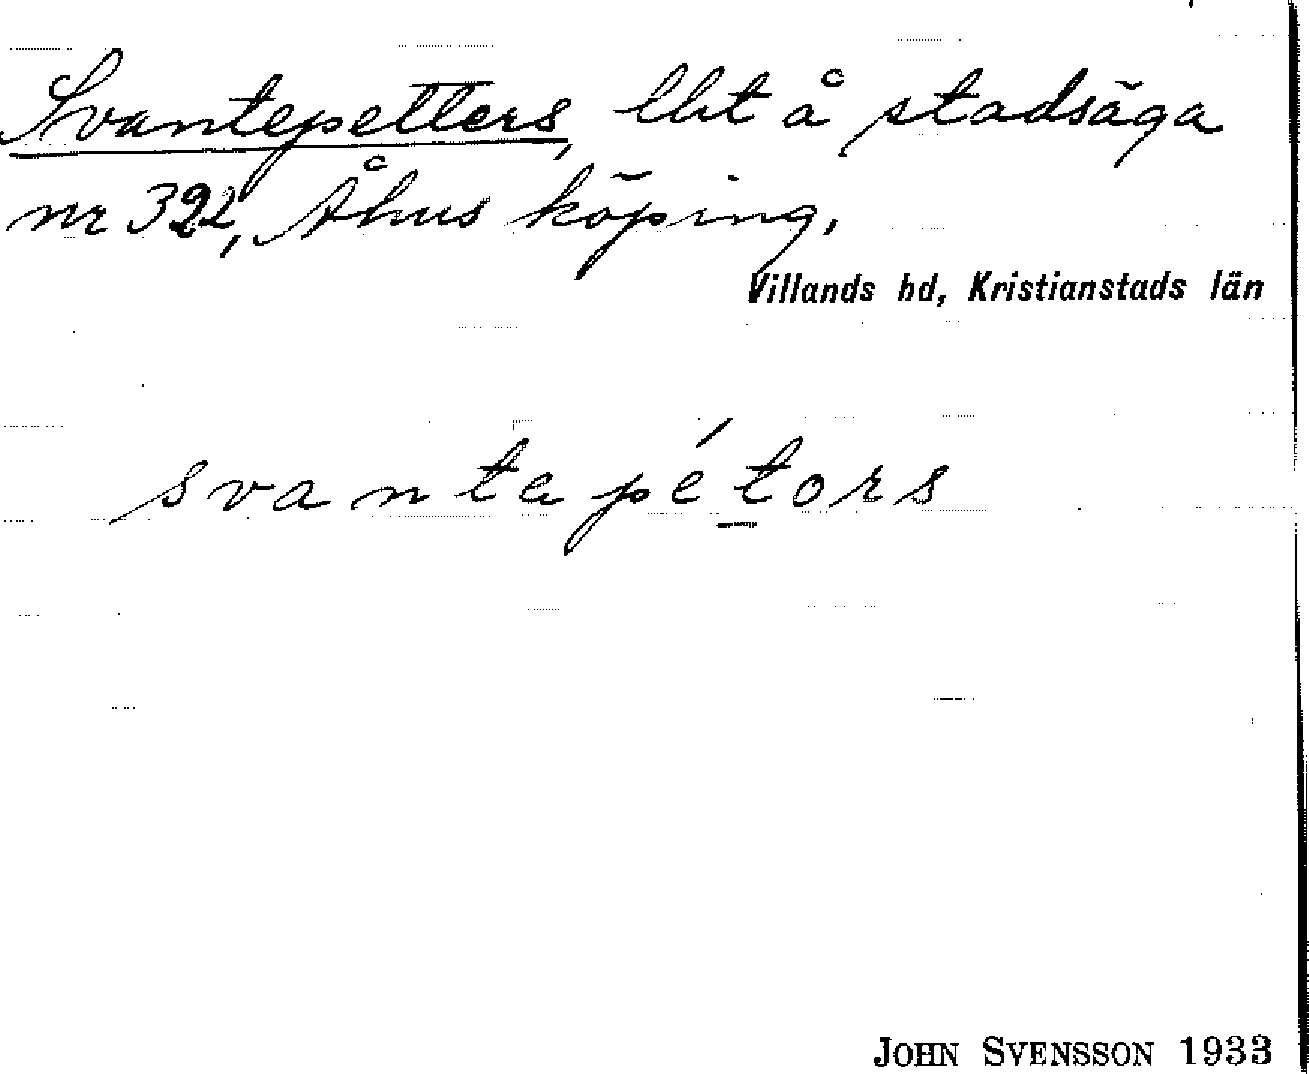 Svantepetters, lht å stadsäga
nr 322, Åhus köping.
Villands hd, Kristianstads län
svantapétors
JOHN SVENSSON 1933